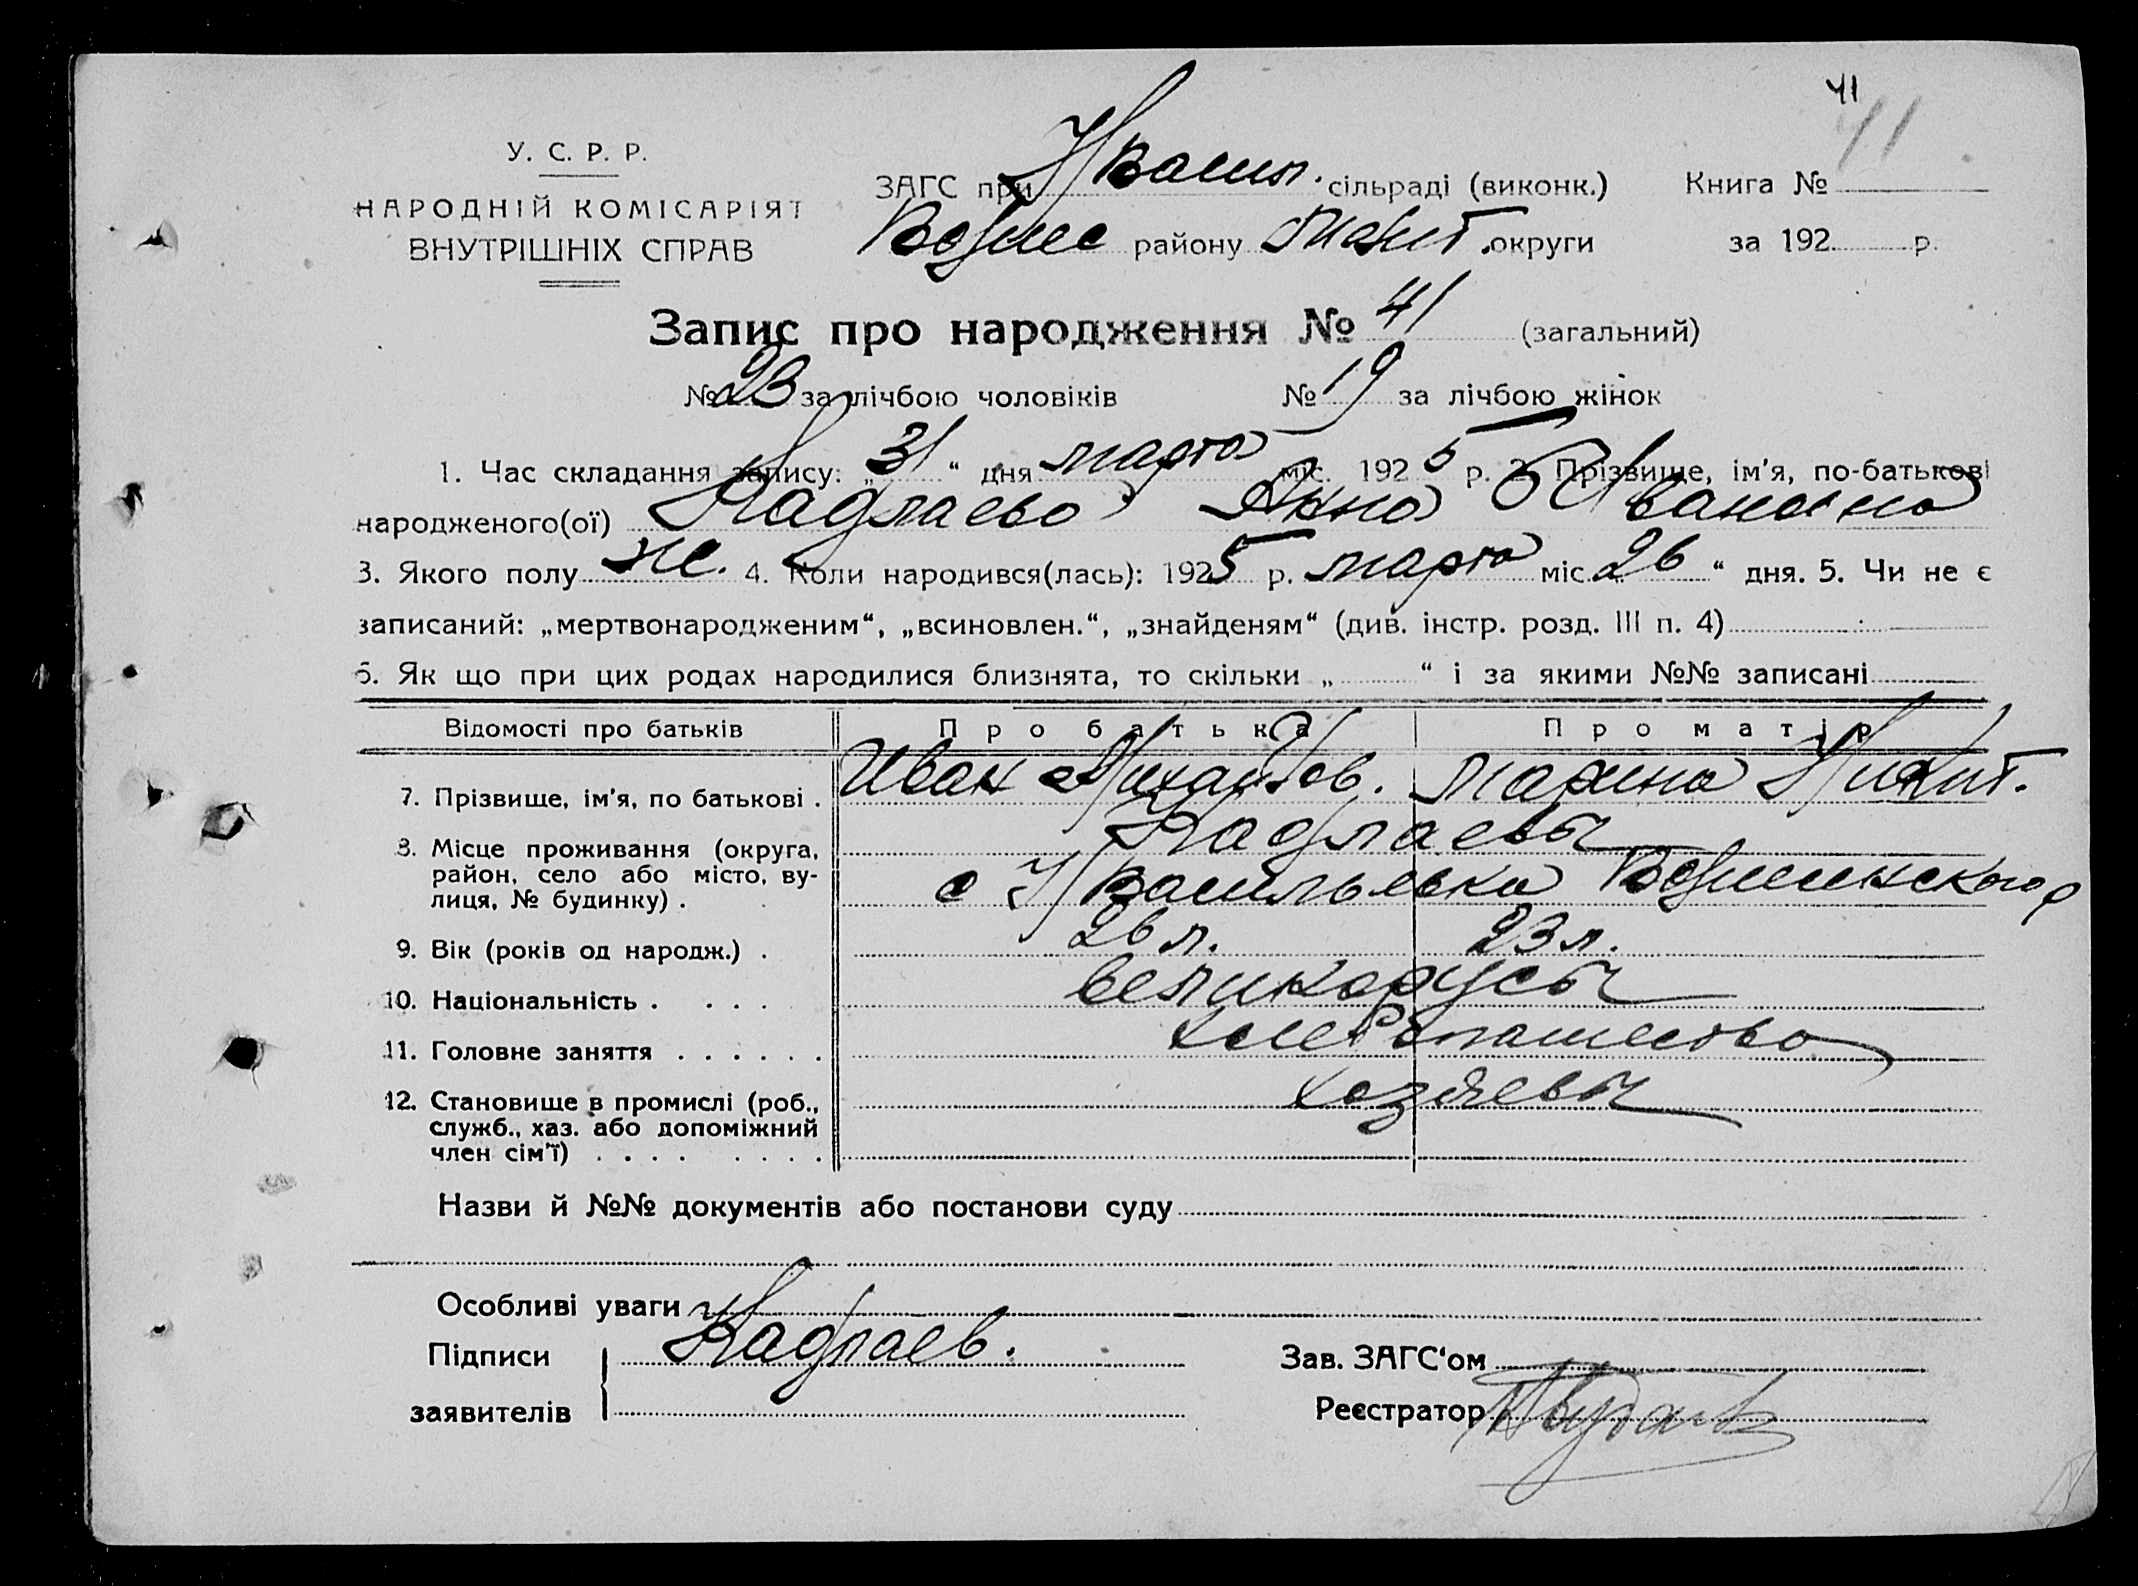 41
41
У. С. Р. Р.
НАРОДНІЙ КОМІСАРІЯТ
ВНУТРІШНІХ СПРАВ
ЗАГС при Н Васил. сільраді (виконк.) Книга №
району округи за 192 р.
Запис про народження № 41 (загальний)
№ 23 за лічбою чоловіків № 19 за лічбою жінок
1. Час складання запису: „31“ дня марта міс. 1925 р. 2. Прізвище, ім'я, по-батькові
народженого(ої) Кадлаева Анна Ивановна
3. Якого полу ж. 4. Коли народився(лась): 1925 р. марта міс. 26“ дня. 5. Чи не є
записаний: „мертвонародженим“, „всиновлен.“, „знайденям“ (див. інстр. розд. III п. 4)
6. Як що при цих родах народилися близнята, то скільки „ “ і за якими №№ записані
Відомості про батьків Про батька Про матір
7. Прізвище, ім'я, по батькові . Иван Михайлов. Марина Никит.
Кадлаевы
8. Місце проживання (округа, район, село або місто, вулиця, № будинку) . с Н Васильевка
9. Вік (років од народж.) . 26 л. 23 л.
10. Національність . . . . великорусы
11. Головне заняття . . . . . . хлебопашество
12. Становище в промислі (роб., служб., хаз. або допоміжний член сім'ї) . . . . . . . . хозяевы
Назви й №№ документів або постанови суду
Особливі уваги
Підписи Кадлаев. Зав. ЗАГС'ом
заявителів Реєстратор